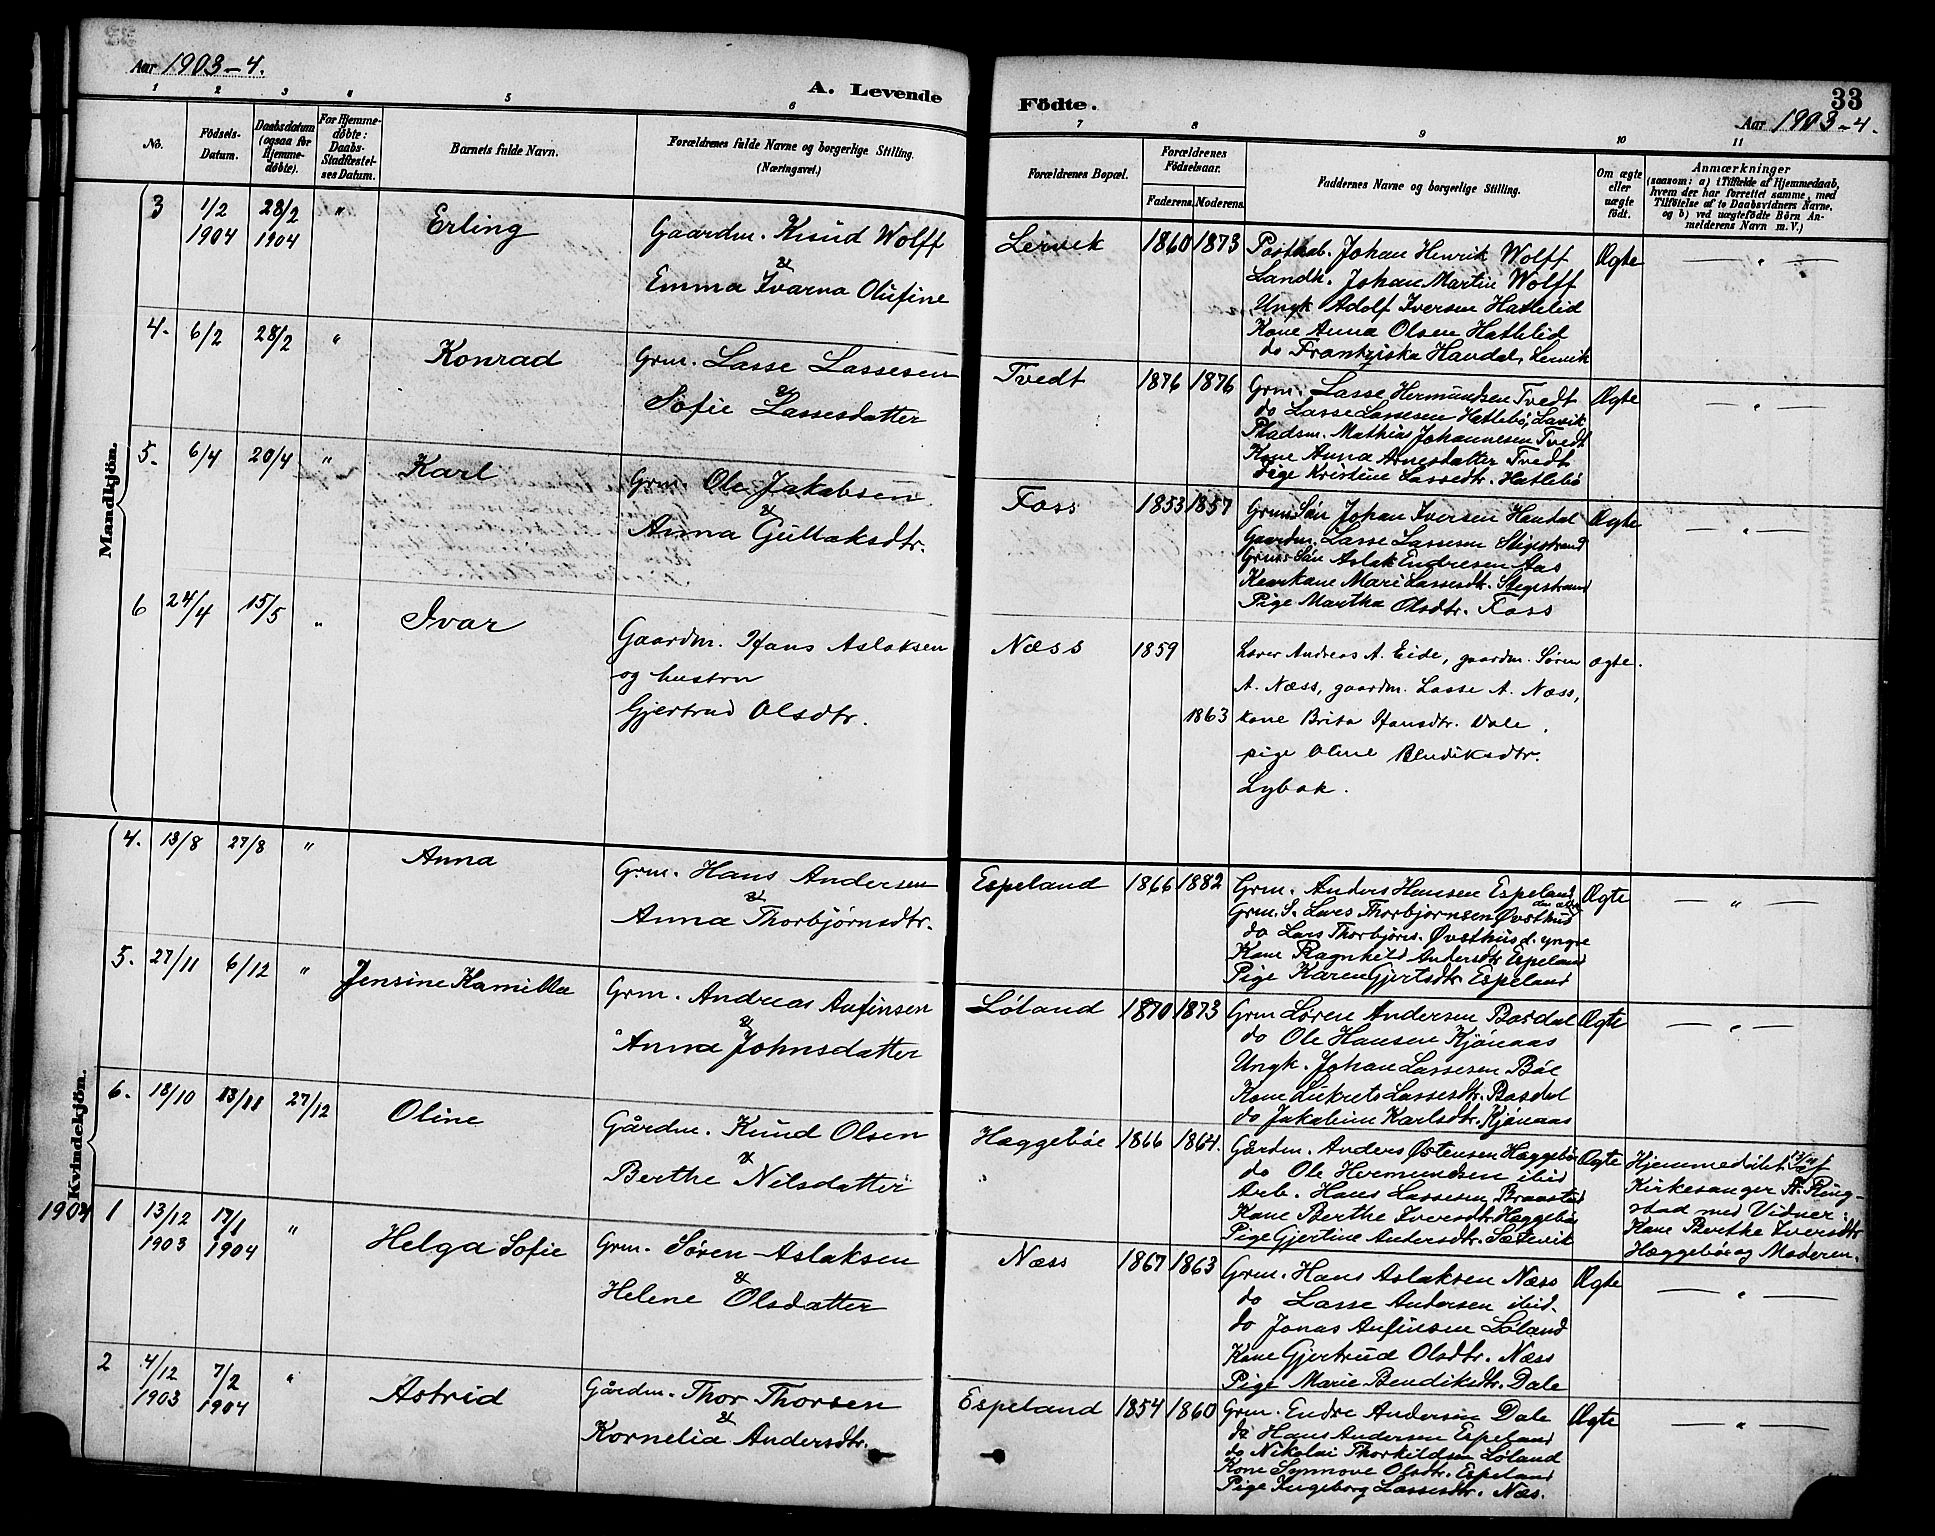 Aar 1903-4.
A. Levende
Födte.
33
Aar 1903-4.
1 2 3 4 5 6 7 8 9 10 11
No.
Födsels-Datum.
Daabsdatum (ogsaa for Hjemme-døbte).
For Hjemme-døbte: Daabs-Stadfæstel-ses Datum.
Barnets fulde Navn.
Forældrenes fulde Navne og borgerlige Stilling.
(Næringsvei.)
Forældrenes Bopæl.
Forældrenes Fødselsaar.
Faderens. Moderens.
Faddernes Navne og borgerlige Stilling.
Om ægte eller uægte født.
Anmærkninger
(saasom: a) i Tilfælde af Hjemmedaab,
hvem der har forrettet samme, med
Tilføielse af to Daabsvidners Navne,
og b) ved uægtefødte Børn An-
melderens Navn m. V.)
Mandkjön.
3 1/2 1904 28/2 1904 " Erling
Gaardm. Knud Wolff
&
Emma Ivarna Olufine
Lervik 1860 1873
Postaab. Johan Henrik Wolff
Landh. Johan Martin Wolff
Ungk Adolf Iversen Hatlelid
Kone Anna Olsen Hatlelid
do Frantziska Havdal, Lervik
Ægte — " —
4. 6/2 28/2 " Konrad
Grm. Lasse Lassesen
&
Sofie Lassesdatter
Tvedt 1876 1876
Grm. Lasse Hermundsen Tvedt
do Lasse Lassesen Hatlebö, Lavik
Pladsm. Mathias Johannesen Tvedt
Kone Anna Arnesdatter Tvedt
Pige Kristine Lassedtr. Hatlebö
Ægte — " —
5. 6/4 20/4 " Karl
Grm. Ole Jakobsen
&
Anna Gullaksdtr.
Foss 1853 1857
Grms Sön Johan Iversen Havdal
Gaardm. Lasse Lassesen Stigestrand
Grms Sön Aslak Endresen Aas
Kone Mari Lassesdt. Stegestrand
Pige Martha Olsdtr. Foss
Ægte — " —
6 24/4 15/5 " Ivar
Gaardm. Hans Aslaksen
og hustru
Gjertrud Olsdtr.
Næss 1859 1863
Lærer Andreas A. Eide, gaardm. Søren
A. Næss, gaardm. Lasse A. Næss,
kone Brita Hansdtr. Dale,
pige Oline Bendiksdtr.
Lybæk.
ægte.
Kvindekjön.
4. 13/8 27/8 " Anna
Grm. Hans Andersen
&
Anna Thorbjørnsdtr.
Espeland 1866 1882
Grm. Anders Hansen Espeland
Grm. S. Lars Thorbjørnsen Øvsthus den ældre
do Lars Thorbjörns. Øvsthus d. yngre
Kone Ragnhild Andersdtr Espeland
Pige Karen Gjertsdtr Espeland
Ægte — " —
5. 27/11 6/12 " Jensine Kamilla
Grm. Andreas Anfinsen
&
Anna Johnsdatter
Løland 1870 1873
Grm Søren Andersen Bosdal
do Ole Hansen Kjönaas
Ungk. Johan Lassesen Böe
Kone Lukrets Lassesdtr. Bosdal
do Jakobine Karlsdtr. Kjønaas
Ægte — " —
6. 18/10 13/11 27/12 Oline
Gårdm. Knud Olsen
&
Berthe Nilsdatter
Hæggebøe 1866 1864.
Gårdm. Anders Østensen Hæggebö
do Ole Hermundsen ibid
Arb. Hans Lassesen Braastad
Kone Berthe Iversdtr. Hæggebø
Pige Gjertine Andersdtr. Sætevik
Ægte
Hjemmedöbt 13/11 af
Kirkesanger A. Ring-
stad med Vidner:
Kone Berthe Iversdtr
Hæggebø og Moderen.
1904 1 13/12 1903 17/1 1904 " Helga Sofie
Grm. Søren Aslaksen
&
Helene Olsdatter
Næss 1867 1863
Grm. Hans Aslaksen Næss
do Lasse Andersen ibid.
do Jonas Anfinsen Løland
Kone Gjertrud Olsdtr. Næss
Pige Marie Bendiksdtr. Dale
Ægte — " —
2 4/12 1903 7/2 1904 " Astrid
Gårdm. Thor Thorsen
&
Kornelia Andersdtr.
Espeland 1854 1860
Grm. Endre Andersen Dale
do Hans Andersen Espeland
do Nikolai Thorkildsen Løland
Kone Synnøve Olsdtr. Espeland
Pige Ingeborg Lassesdtr. Næs.
Ægte — " —